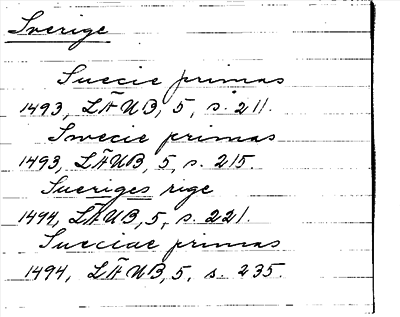 Sverige
Suecie primas
1493, LÄUB, 5, s. 211.
Swecie primas
1493, LÄUB, 5, s. 215.
Sueriges rige
1494, LÄUB, 5, s. 221.
Sueciae primas
1494, LÄUB, 5, s. 235.